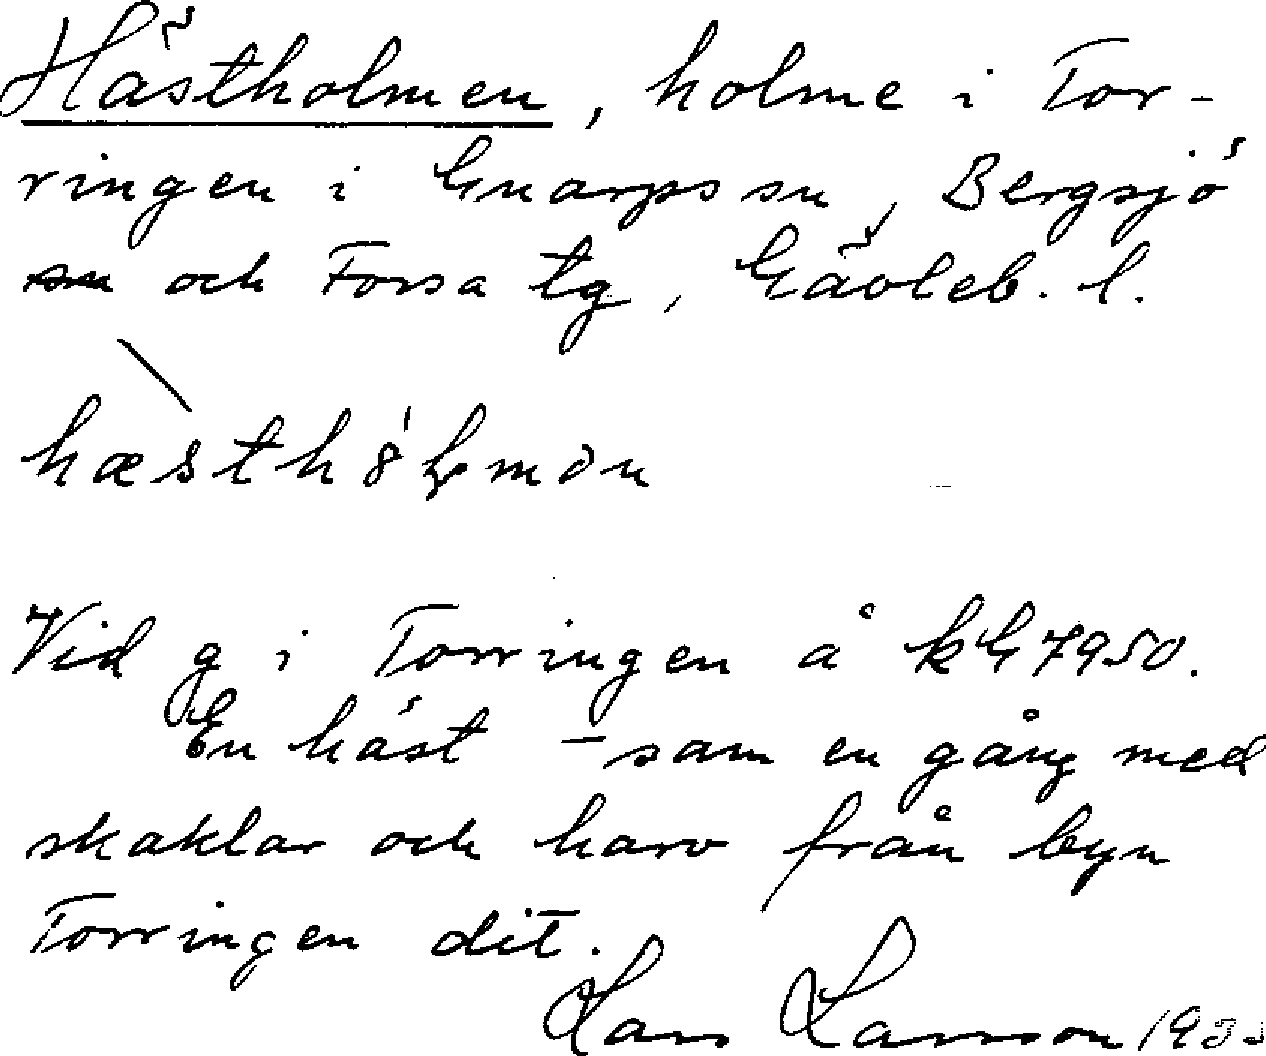 Hästholmen, holme i Tor-
ringen i Gnarps sn, Bergsjö
och Forsa tg, Gävleb. l.
hæsthólmən
Vid g i Torringen å kG7950.
En häst – sam en gång med
skaklar och harv från byn
Torringen dit.
Lars Larsson